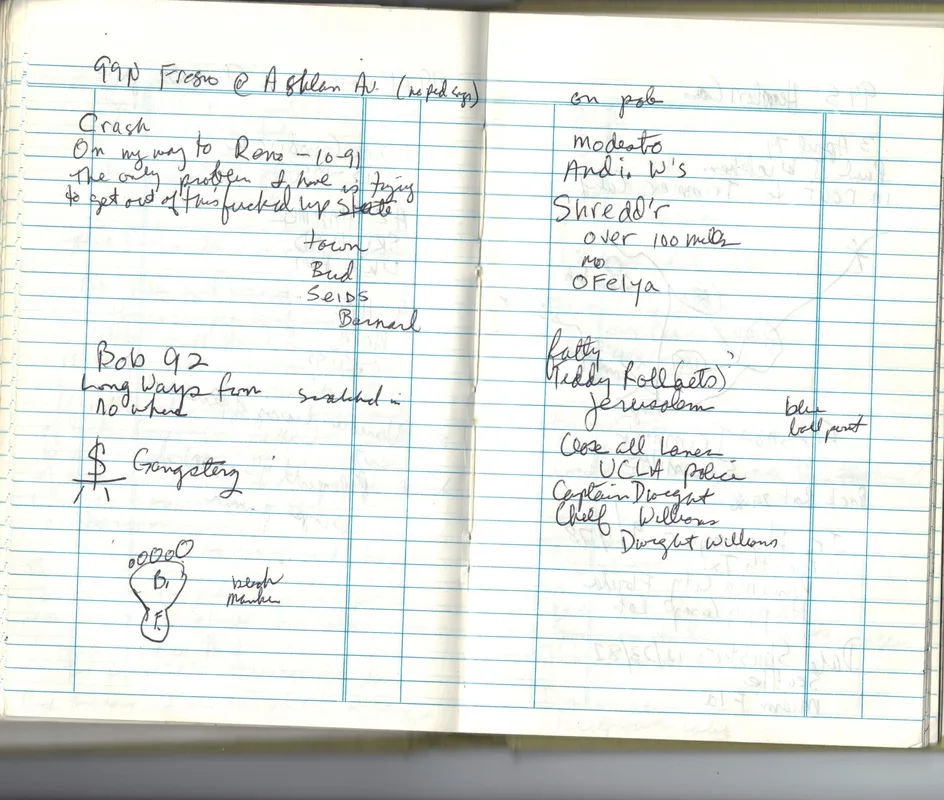 99N Fresno @ Ashlan Av. (no ped sign)
Crash
On my way to Reno - 10-91
The only problem I have is trying
to get out of this fucked up State
town
Bud
SeiDS
Barnard
Bob 92
Long Ways from
no where
scratched in
$ Gangsterz
B.
F.
marker
on pole
modesto
Andi. W's
Shredd'r
over 100 miles
no
OFelya
fatty
Teddy Roll(ets)
Jerusalem
blue
ball point
Close all Lanes
UCLA Police
Captain Dwight
Chief Williams
Dwight Williams